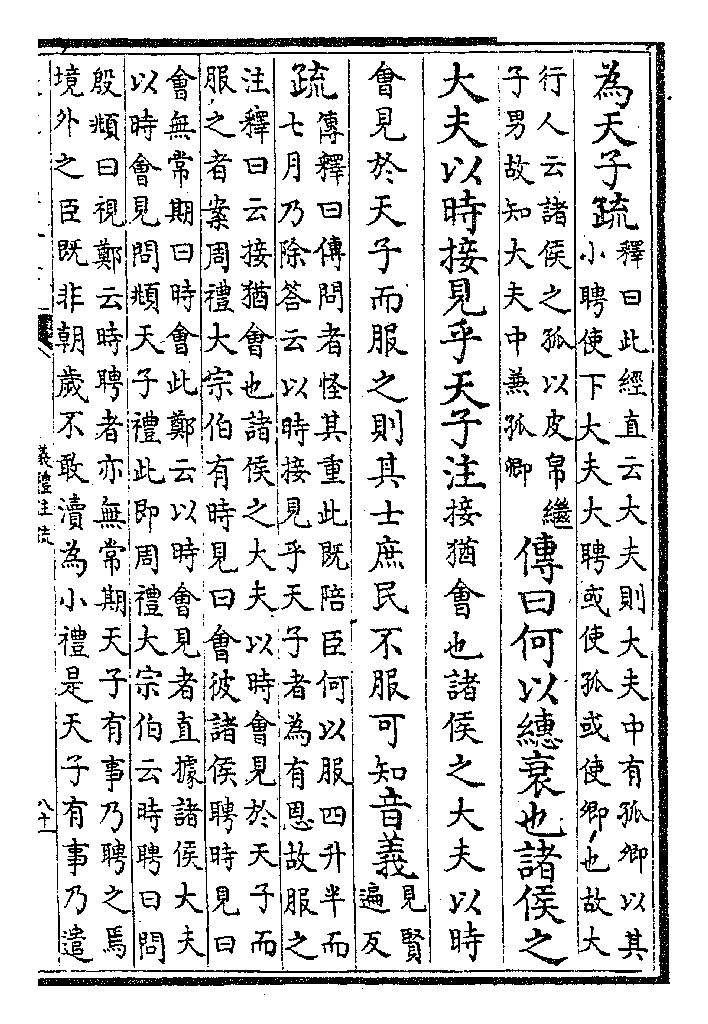 為天子疏
釋曰此經直云大夫則大夫中有孤卿以其
小聘使下大夫大聘或使孤或使卿也故大
行人云諸侯之孤以皮帛繼
子男故知大夫中兼孤卿
傳曰何以繐衰也諸侯之
大夫以時接見乎天子注
接猶會也諸侯之大夫以時
會見於天子而服之則其士庶民不服可知
音義
見賢
遍反
疏
傳釋曰傳問者怪其重此既陪臣何以服四升半而
七月乃除答云以時接見乎天子者為有恩故服之
注釋曰云接猶會也諸侯之大夫以時會見於天子而
服之者案周禮大宗伯有時見曰會彼諸侯聘時見曰
會無常期曰時會此鄭云以時會見者直據諸侯大夫
以時會見問頫天子禮此即周禮大宗伯云時聘曰問
殷頫曰視鄭云時聘者亦無常期天子有事乃聘之焉
境外之臣既非朝歲不敢瀆為小禮是天子有事乃遣
儀禮注疏
八十一